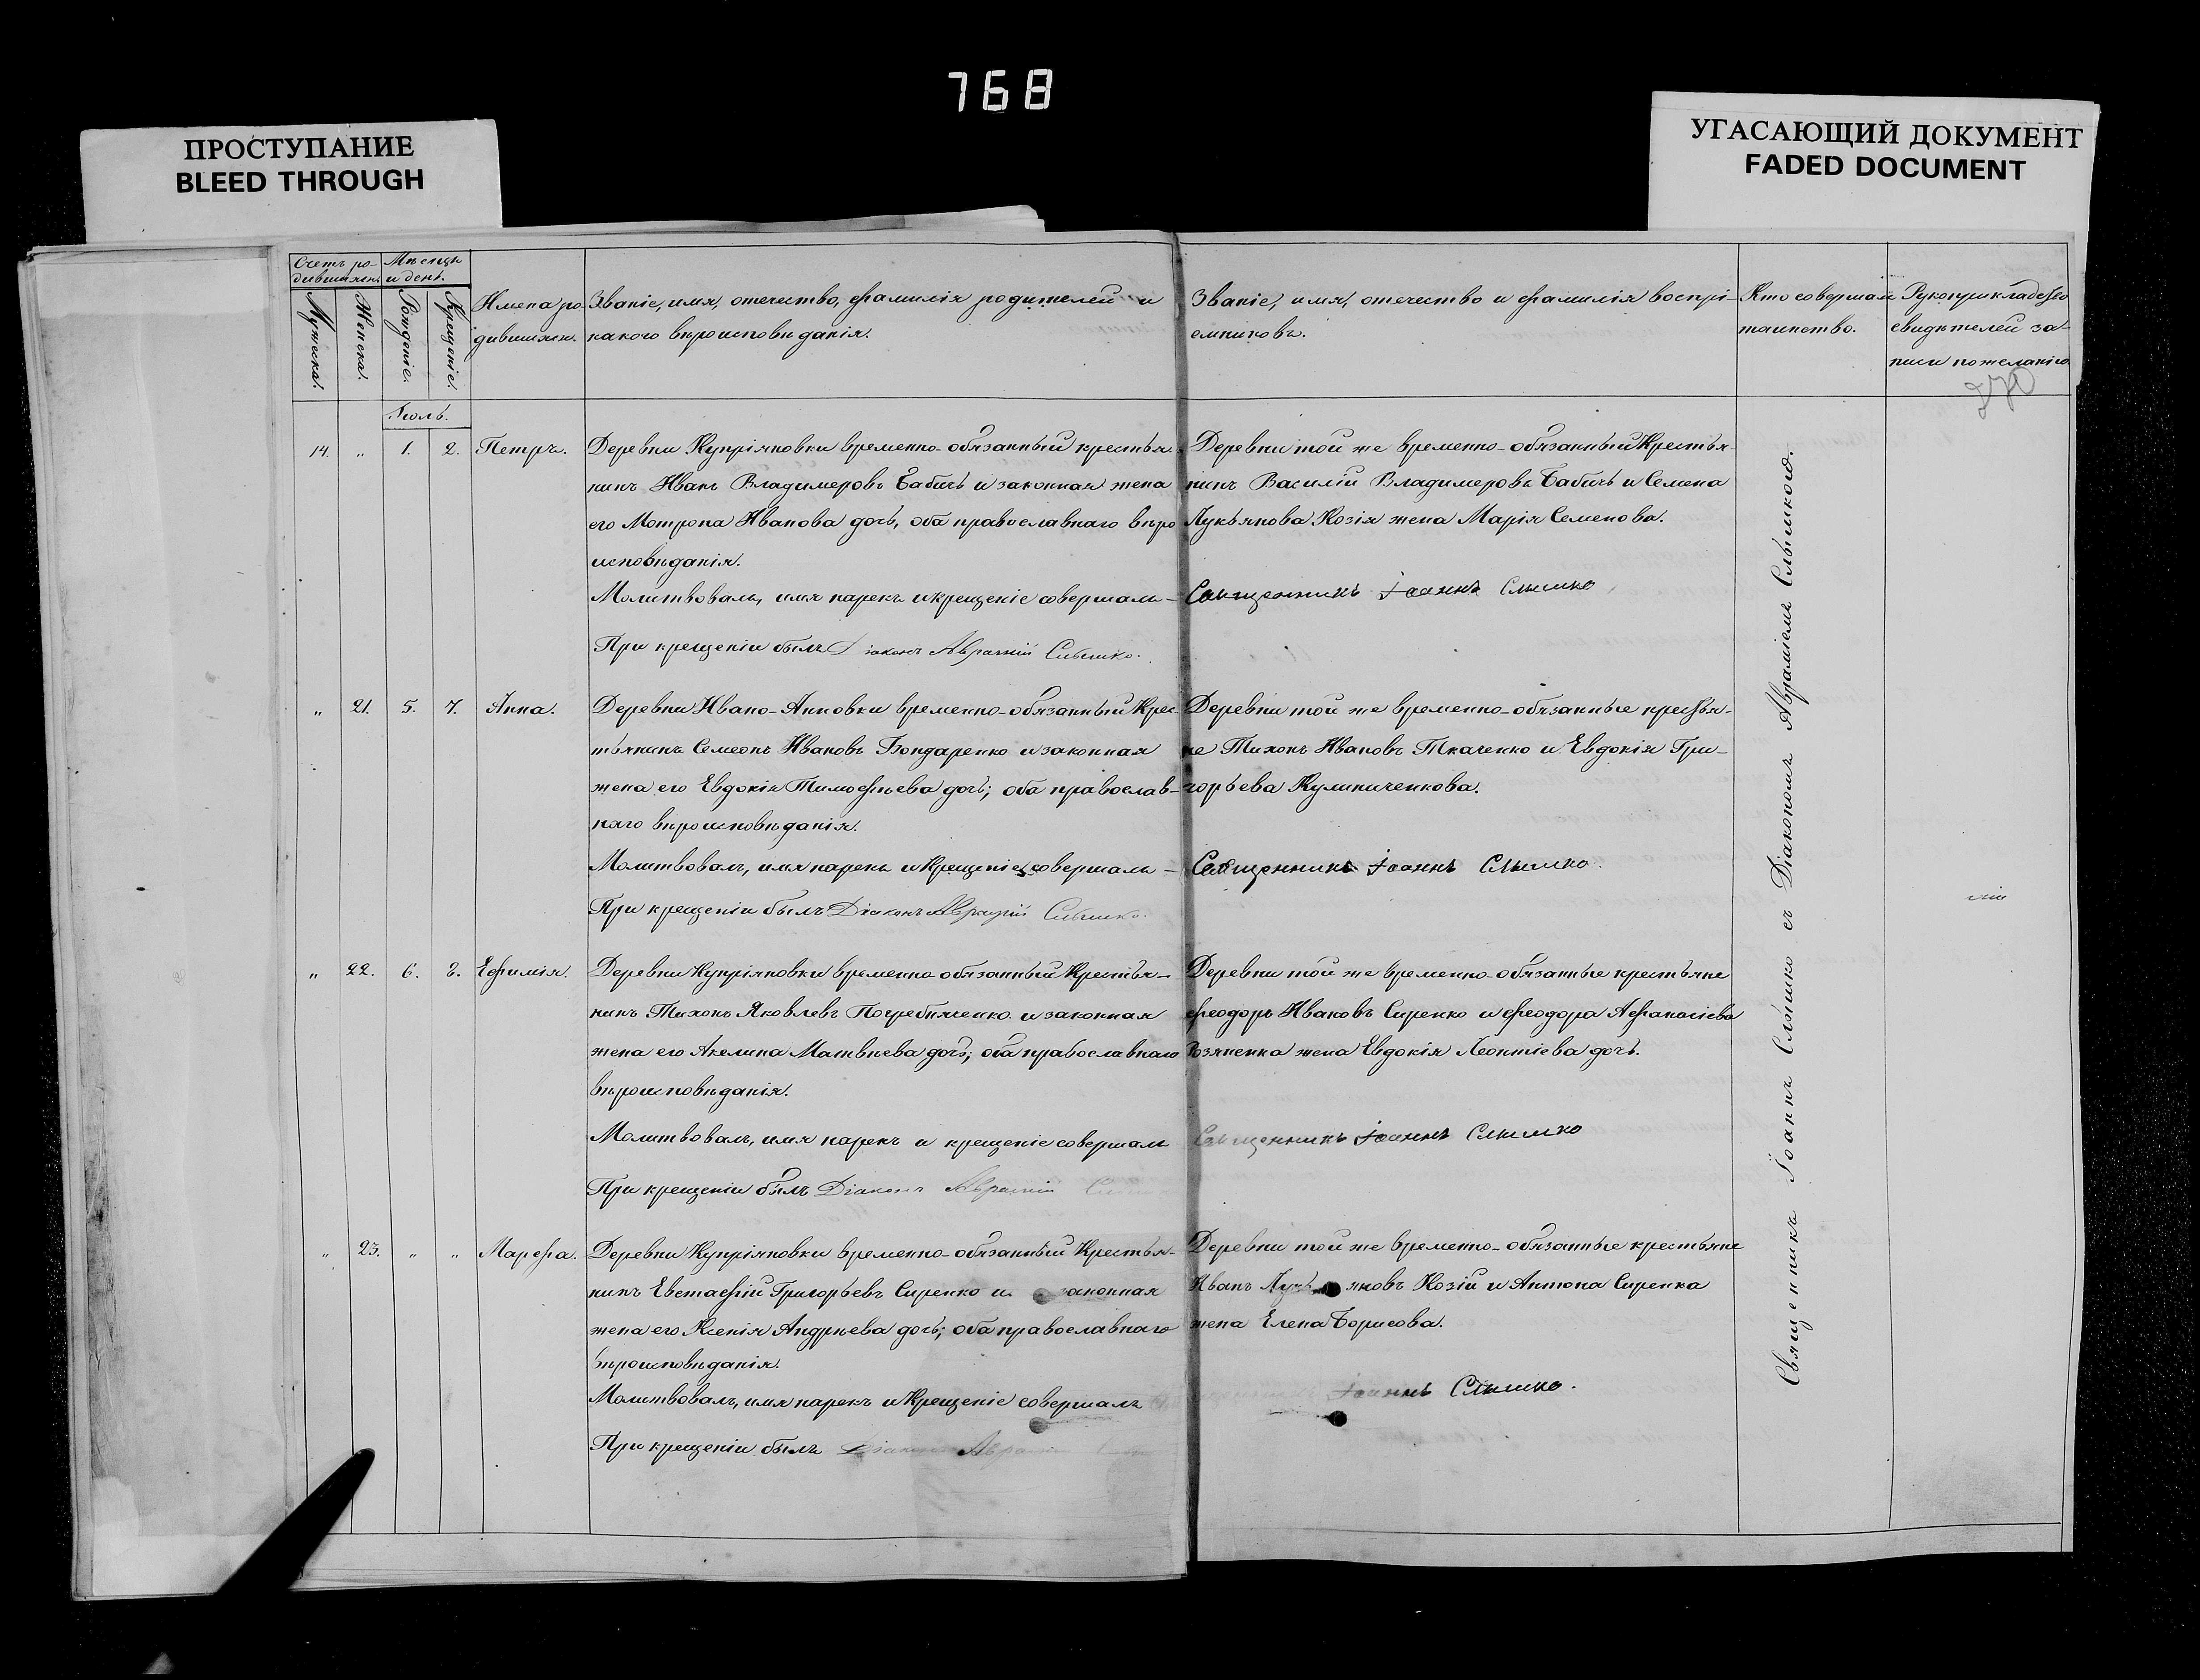 768
ПРОСТУПАНИЕ
BLEED THROUGH
УГАСАЮЩИЙ ДОКУМЕНТ
FADED DOCUMENT
Счетъ ро-
дившихся.
Мѣсяцъ
и день.
Мужеска.
Женска.
Рожденіе.
Крещеніе.
Имена ро-
дившихся.
Званіе, имя, отечество, фамилія родителей и
какого вѣроисповѣданія.
Званіе, имя, отечество и фамилія воспрі-
емниковъ.
Кто совершалъ
таинство.
Рукоприкладство
свидѣтелей за-
писи по желанію.
270
Іюль.
14. " 1. 2. Петръ.
Деревни Купріяновки временно-обязанный крестья-
нинъ Иванъ Владимеровъ Бабичъ и законная жена
его Мотрона Иванова дочь, оба православнаго вѣро
исповѣданія.
Молитвовалъ, имя нарекъ и крещеніе совершалъ –
При крещеніи былъ Діаконъ Аврамій Слышко.
Деревни той же временно-обязанный Крестья-
нинъ Василій Владимеровъ Бабичъ и Семена
Лукьянова Козія жена Марія Семенова.
Священникъ Іоаннъ Слышко
" 21. 5. 7. Анна.
Деревни Ивано-Анновки временно-обязанный Крес-
тьянинъ Семеонъ Ивановъ Бондаренко и законная
жена его Евдокія Тимофѣева дочь; оба православ-
наго вѣроисповѣданія.
Молитвовалъ, имя нарекъ и Крещеніе совершалъ –
При крещеніи былъ Діаконъ Аврамій Слышко.
Деревни той же временно-обязанные крестья-
не Тихонъ Ивановъ Ткаченко и Евдокія Гри-
горьева Кулиниченкова.
Священникъ Іоаннъ Слышко.
" 22. 6. 8. Ефимія.
Деревни Купріяновки временно-обязанный Крестья-
нинъ Тихонъ Яковлевъ Погребняченко и законная
жена его Акелина Матвѣева дочь; оба православнаго
вѣроисповѣданія.
Молитвовалъ, имя нарекъ и крещеніе совершалъ
При крещеніи былъ Діаконъ Аврамій
Деревни той же временно-обязанные крестьяне
Феодоръ Ивановъ Сиренко и Феодора Афанасіева
жена Евдокія Леонтіева дочь.
Священникъ Іоаннъ Слышко
" 23. " " Марфа.
Деревни Купріяновки временно-обязанный Крестья-
нинъ Евстафій Григорьевъ Сиренко и законная
жена его Ксенія Андрѣева дочь; оба православнаго
вѣроисповѣданія.
Молитвовалъ, имя нарекъ и Крещеніе совершалъ
При крещеніи былъ Діаконъ
Деревни той же временно-обязанные крестьяне
Иванъ Лукьяновъ Козій и Антона Сиренка
жена Елена Борисова.
Іоаннъ Слышко.
Священникъ Іоаннъ Слышко съ Діакономъ Авраміемъ Слышкою.